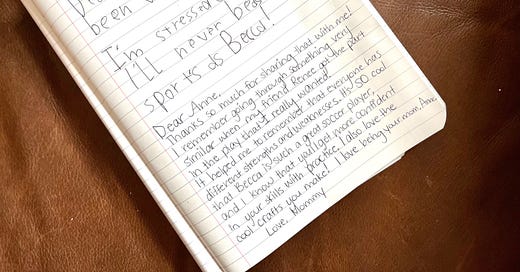 been
I'm stressed
I'll never be
sports as Becca!
Dear Anne,
Thanks so much for sharing that with me!
I remember going through something very
similar when my friend Renee got the part
in the play that I really wanted!
It helped me to remember that everyone has
different strengths and weaknesses. It's SO cool
that Becca is such a great soccer player,
and I know that you'll get more confident
in your skills with practice. I also love the
cool crafts you make! I love being your mom, Anne.
Love, Mommy